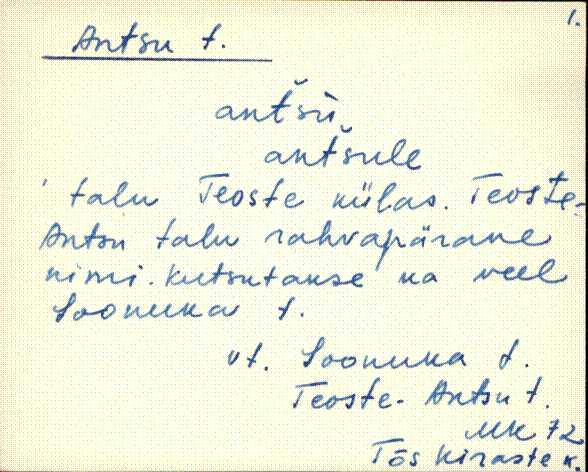 1.
Antsu t.
antšu
antšule
' talu Teoste külas. Teoste-
Antsu talu rahvapärane
nimi. Kutsutakse ka veel
Soonuka t.
vt. Soonuka t.
Teoste-Antsu t.
MK 72
Tõs Kiraste k.